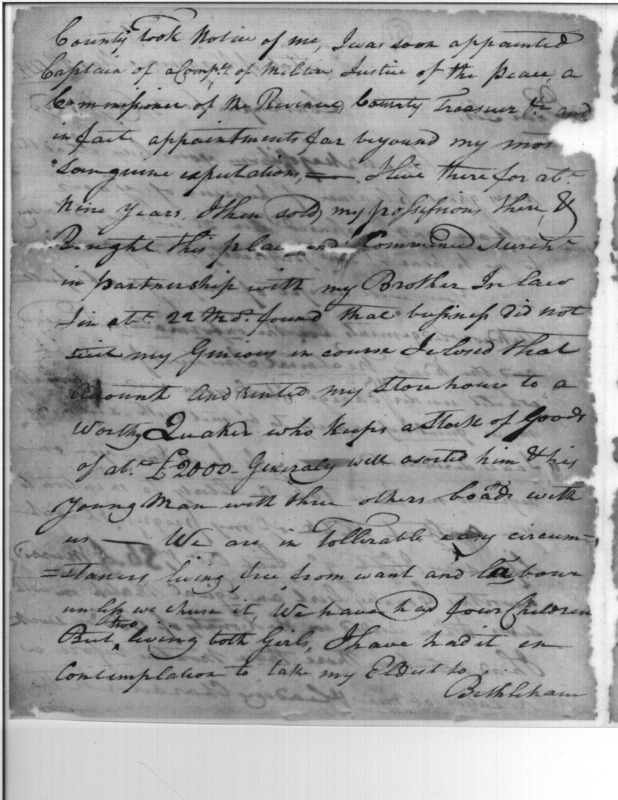 County Took Notice of me, I was soon appointed
Captain of a Compy. of Militia Justice of the peace, a
Commissioner of the Revenue, County Treasurer &c and
in fact appointments far beyound my mos
sanguine expectations, — I live there for abt.
nine years. I then sold my possessions there, &
Bought this place and Commenced Mercht.
in partnership with my Brother In Law
I in abt. 22 Mos. found that business did not
suit my Genious in course I closed that
account and rented my store house to a
worthy Quaker who keeps a Stock of Goods
of abt. £2000 - Generaly well asorted him & his
young Man with three others boads with
us — We are in tollerable easy circum=
=stances, living free from want and labour
unless we chuse it, We have had four Children
But two living both Girls, I have had it in
Contemplation to take my Eldest to
Bethleham